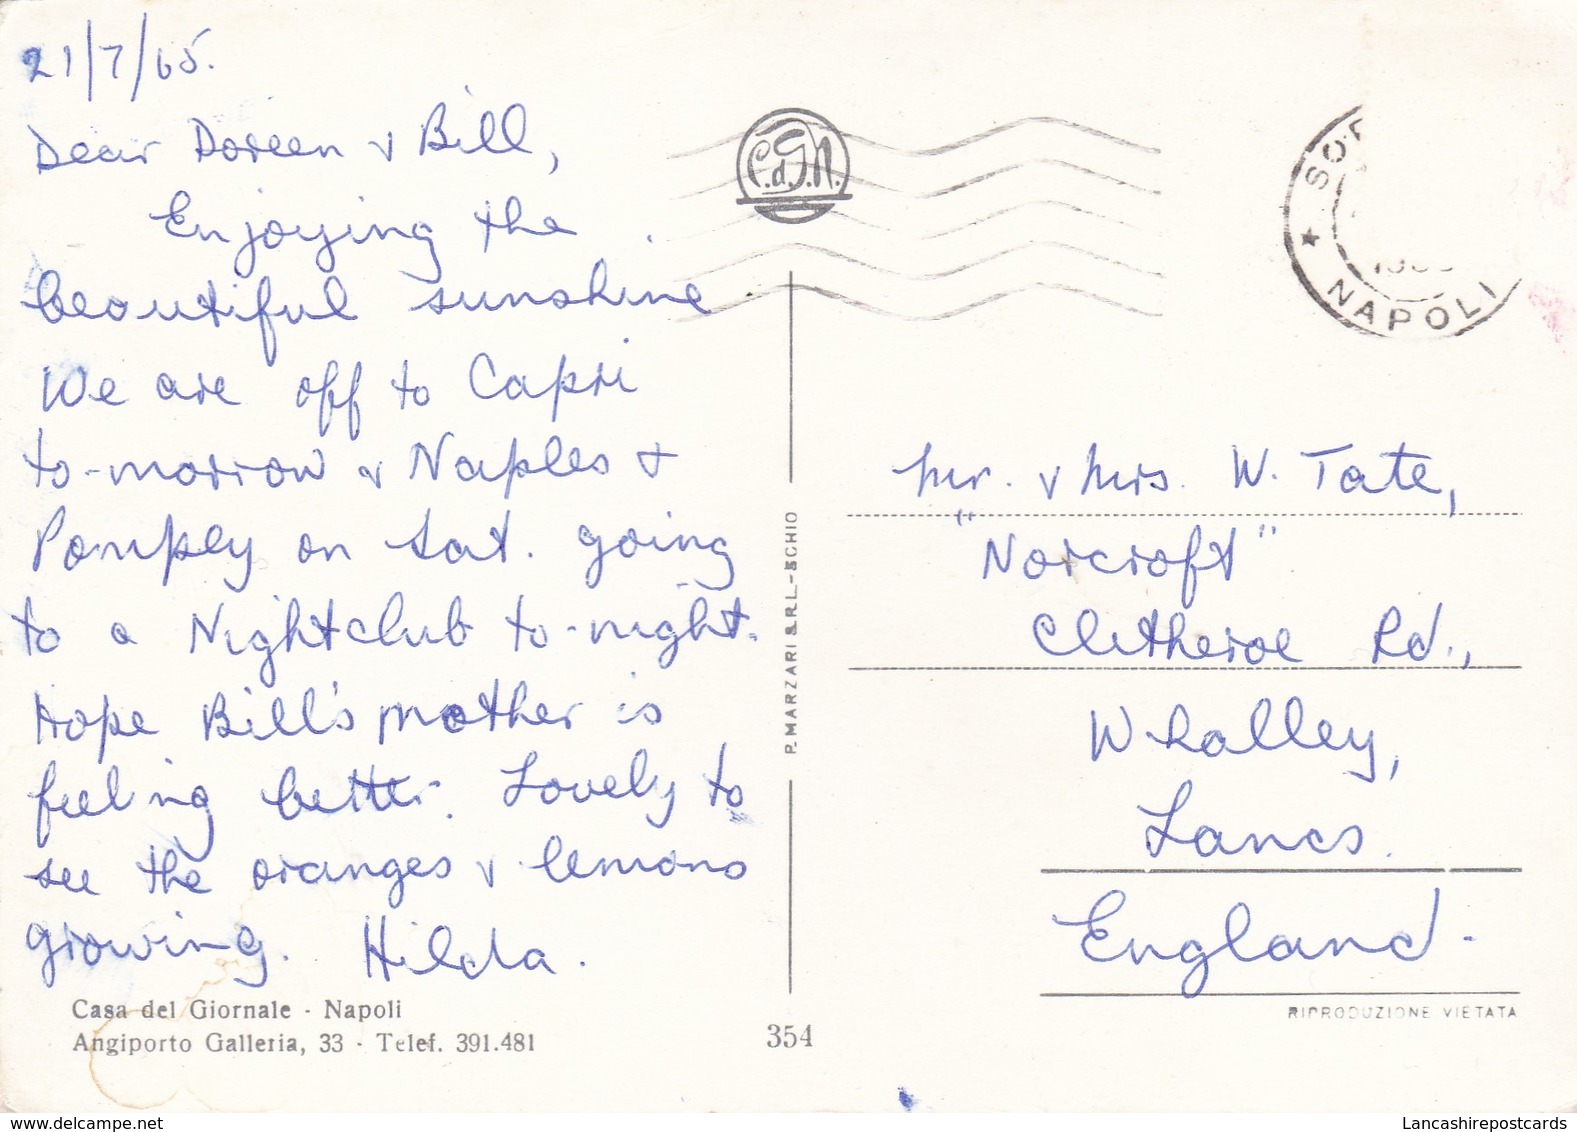 21/7/65.
Dear Doreen & Bill,
Enjoying the
beautiful sunshine
We are off to Capri
to-morrow & Naples &
Pompey on Sat. going
to a Nightclub to-night.
Hope Bill's mother is
feeling better. Lovely to
see the oranges & lemons
growing. Hilda.
Casa del Giornale - Napoli
Angiporto Galleria, 33 - Telef. 391.481
C.d.G.N.
P. MARZARI S.R.L. - SCHIO
354
NAPOLI
Mr. & Mrs. W. Tate,
"Norcroft"
Clitheroe Rd.,
Whalley,
Lancs.
England.
RIPRODUZIONE VIETATA
www.delcampe.net
Lancashirepostcards